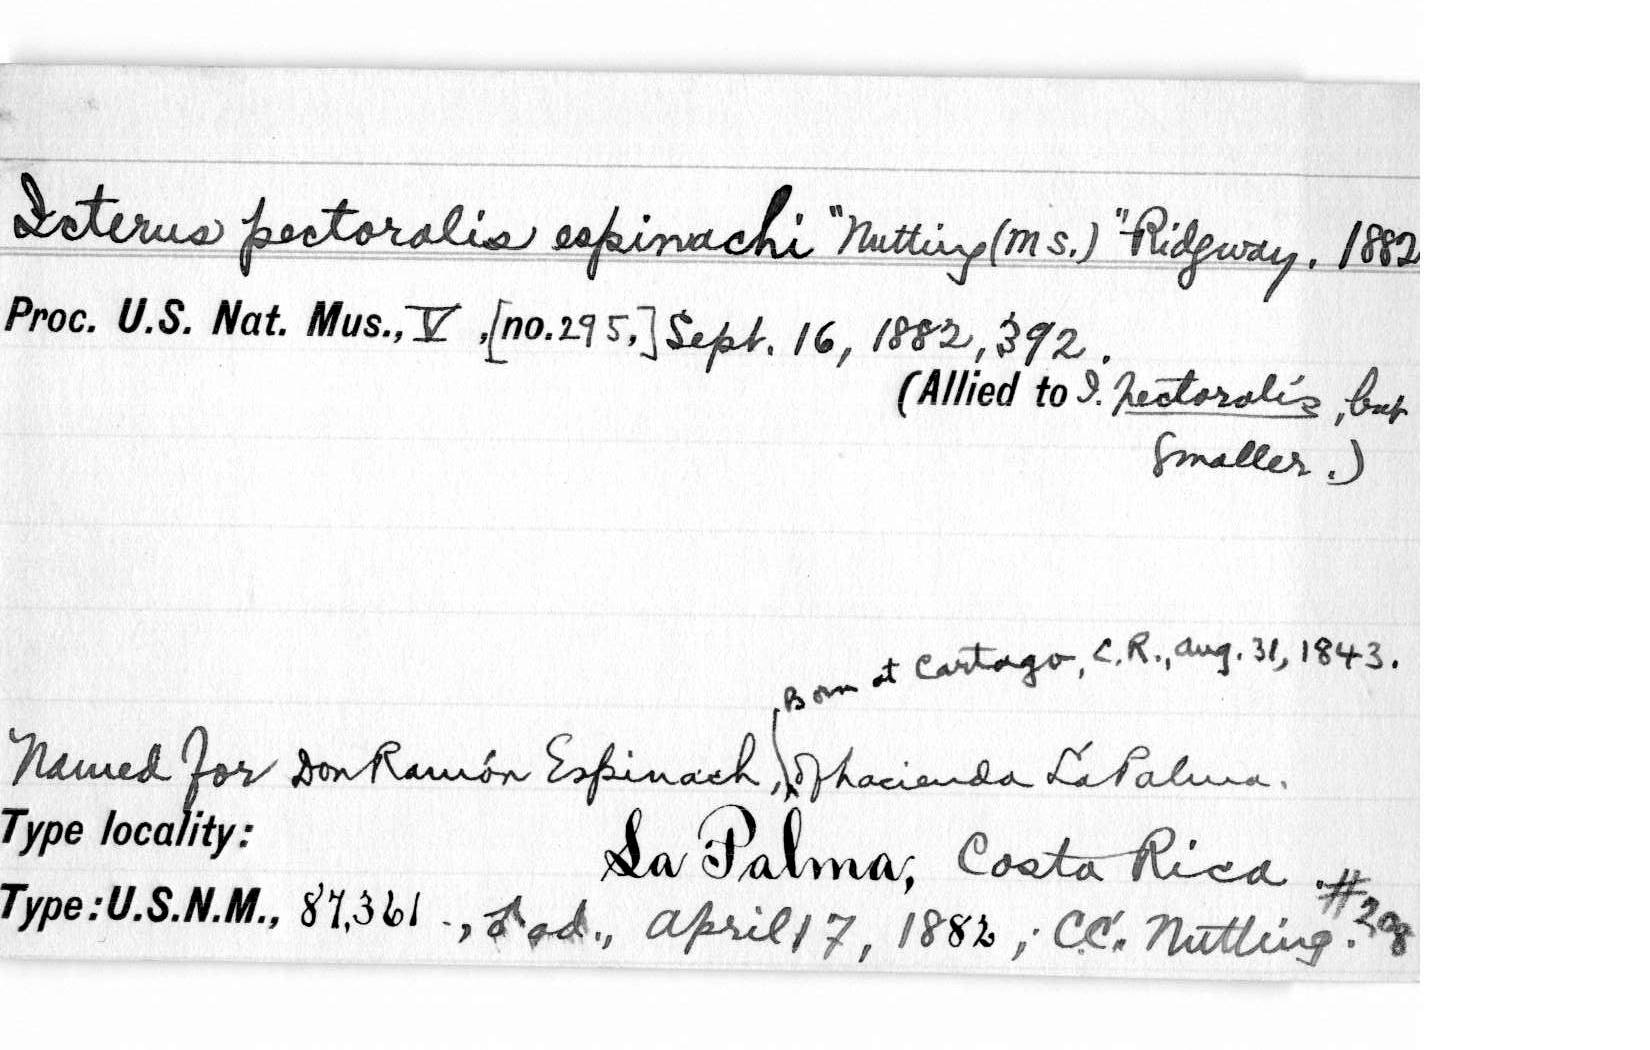 Icterus pectoralis espinachi "Nutting (MS.)" Ridgway. 1882
Proc. U.S. Nat. Mus., V, [no. 295,] Sept. 16, 1882, 392.
(Allied to I. pectoralis, but
smaller.)
Born at Cartago, C.R., Aug. 31, 1843.
Named for Don Ramón Espinach, of hacienda La Palma.
Type locality:
La Palma, Costa Rica. #208
Type: U.S.N.M., 87,361., ♂ ad., April 17, 1882; C.C. Nutting.